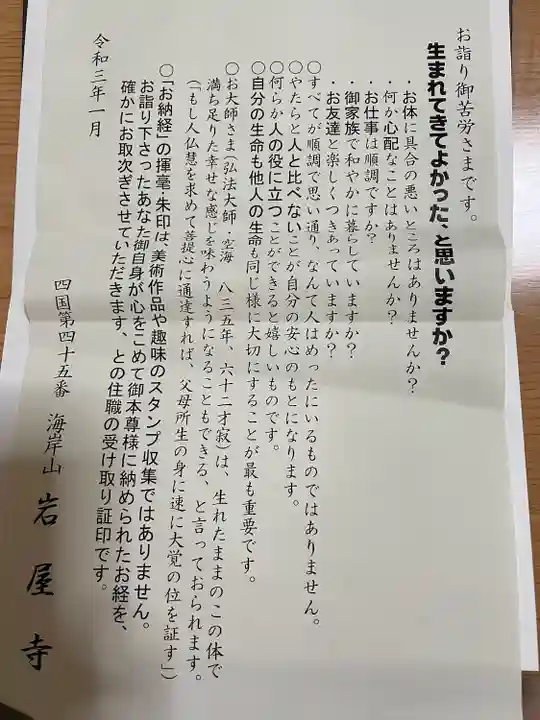 お詣り御苦労さまです。
生まれてきてよかった、と思いますか?
・お体に具合の悪いところはありませんか?
・何か心配なことはありませんか?
・お仕事は順調ですか?
・御家族で和やかに暮らしていますか?
・お友達と楽しくつきあっていますか?
○すべてが順調で思い通り、なんて人はめったにいるものではありません。
○やたらと人と比べないことが自分の安心のもとになります。
○何らか人の役に立つことができると嬉しいものです。
○自分の生命も他人の生命も同じ様に大切にすることが最も重要です。
○お大師さま(弘法大師・空海 八三五年、六十二才寂)は、生れたままのこの体で
満ち足りた幸せな感じを味わうようになることもできる、と言っておられます。
(「もし人仏慧を求めて菩提心に通達すれば、父母所生の身に速に大覚の位を証す」)
○「お納経」の揮毫・朱印は、美術作品や趣味のスタンプ収集ではありません。
お詣り下さったあなた御自身が心をこめて御本尊様に納められたお経を、
確かにお取次ぎさせていただきます、との住職の受け取り証印です。
令和三年一月
四国第四十五番 海岸山 岩屋寺